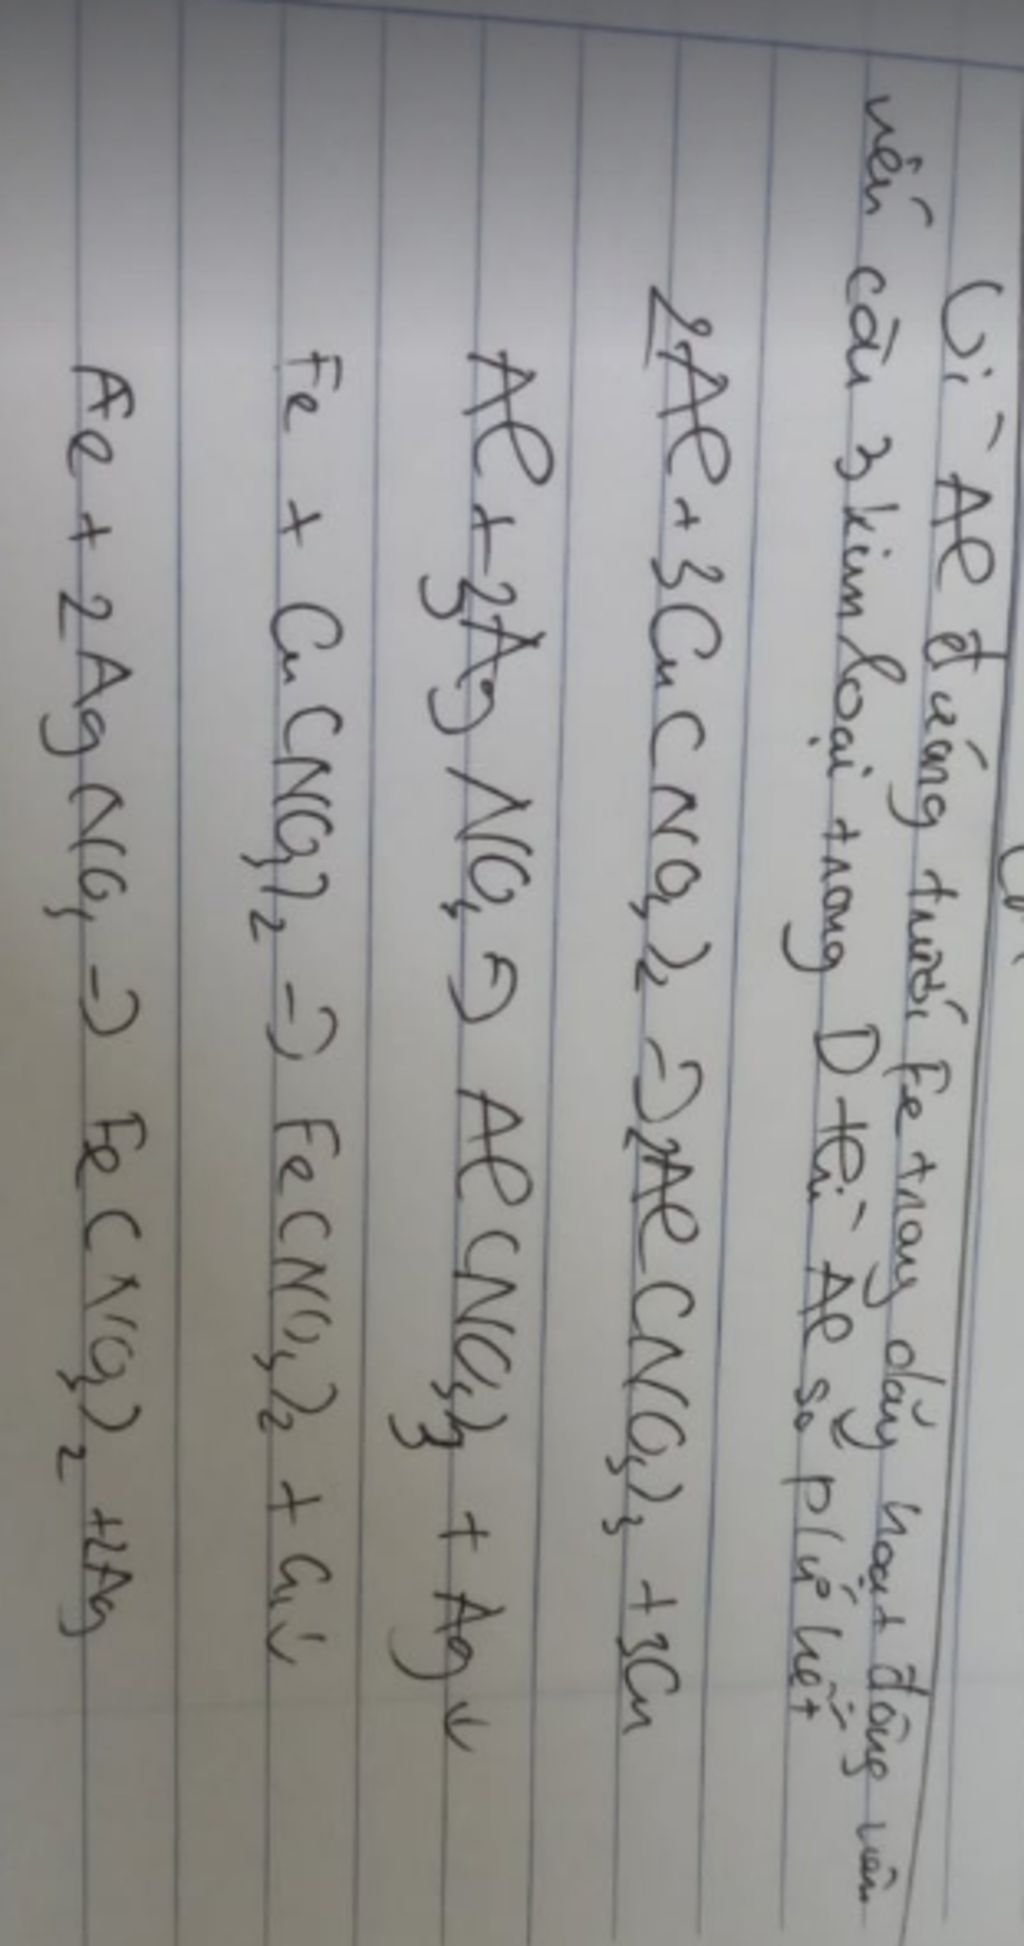 Vì Al đứng trước Fe trong dãy hoạt động nên
nếu còn 3 kim loại trong D thì Al sẽ pứ hết
2Al + 3Cu(NO3)2 -> 2Al(NO3)3 + 3Cu
Al + 3AgNO3 -> Al(NO3)3 + Ag↓
Fe + Cu(NO3)2 -> Fe(NO3)2 + Cu↓
Fe + 2AgNO3 -> Fe(NO3)2 + 2Ag